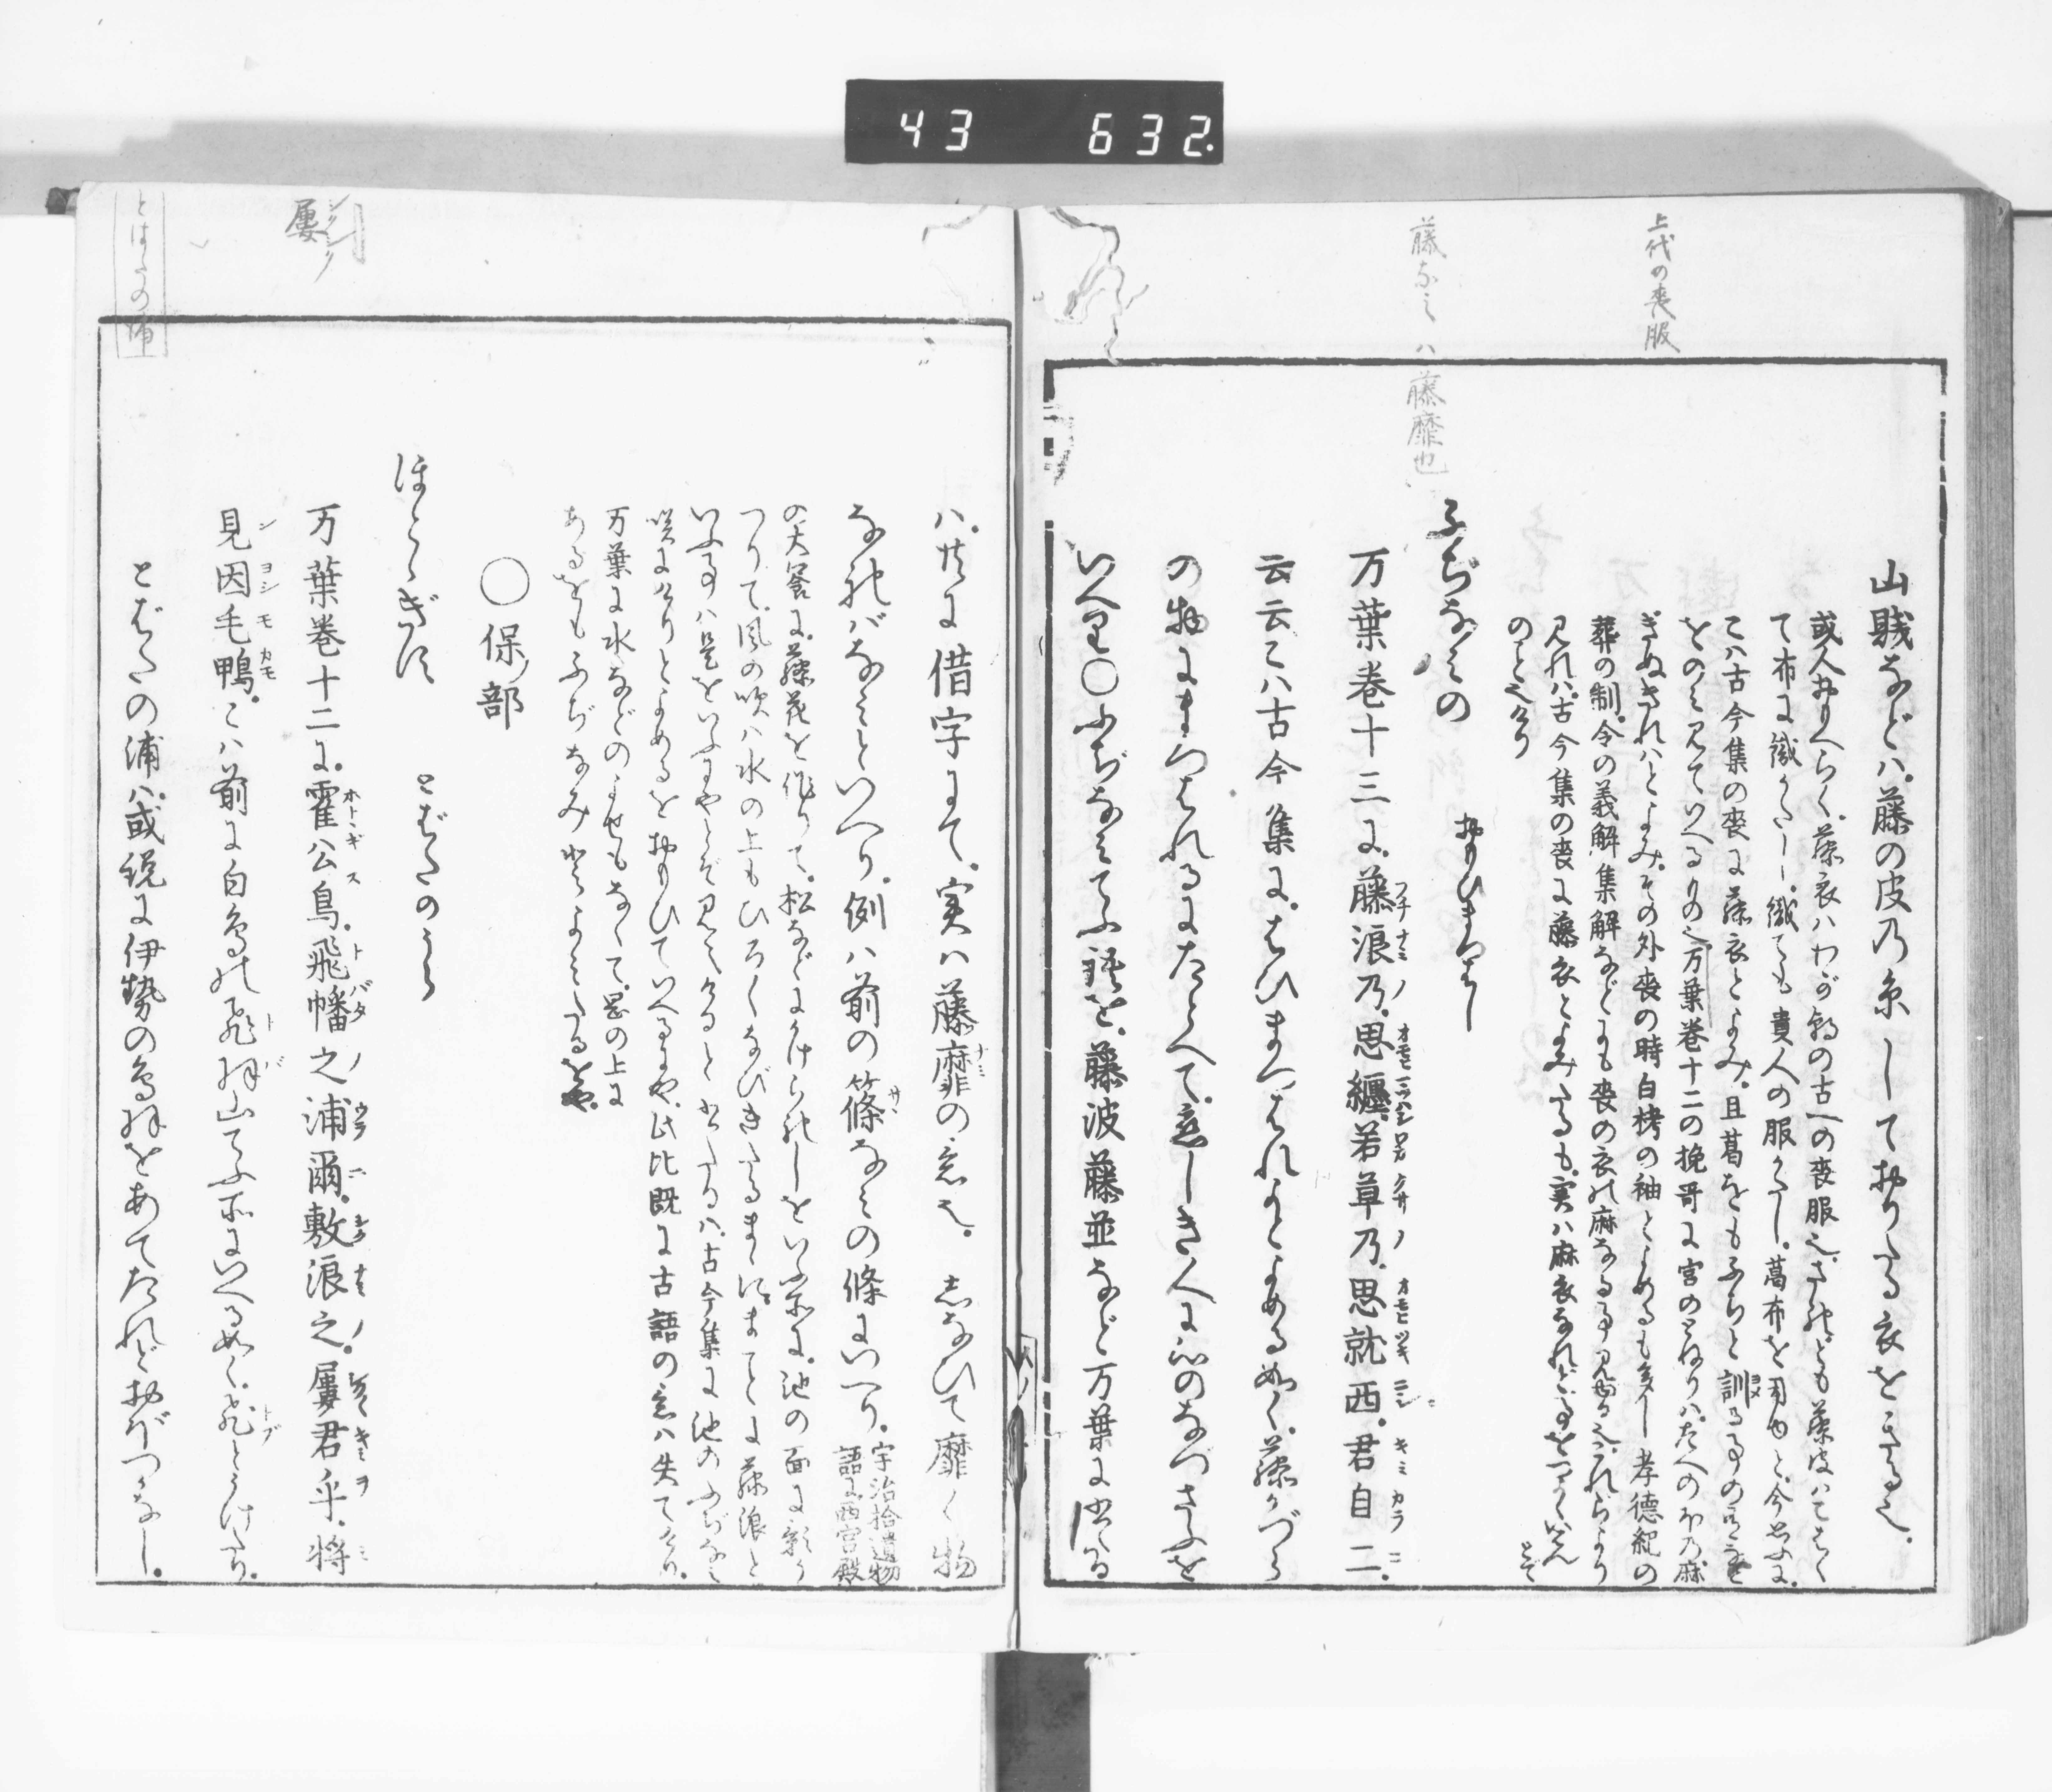 43 632.
上代の喪服
藤なみハ藤靡也
山賤などハ藤の皮乃糸して織りたる衣をきる也。
或人おもへらく、藤衣ハわが朝の古への喪服也、されども藤皮ハこはく
て布に織がたし、織ても貴人の服がたし、葛布を用ゆと、今思ふに、
こハ古今集の喪に藤衣とよみ、且葛をもふぢと訓る事のある
をのミ見ていへるもの也、万葉巻十二の挽哥に宮のとねりハ、たへのほの麻
ぎぬきれハとよみ、その外喪の時白栲の袖とよめるも多し、孝徳紀の
葬の制、令の義解集解などにも喪の衣は麻なる事見ゆる也、これらより
見れハ、古今集の喪に藤衣とよみたるも、実ハ麻衣なれど、事をつくろハん
とてのこと也けり
ふぢなみの おもひまつはし
万葉巻十三に、藤浪乃、思纏、若草乃、思就西、君自二、
云云こハ古今集に、はひまつはれよとよめる如く、藤かづら
の物にまつはれるにたとへて、恋しき人に心のなつさふを
いへり○ふぢなミてふ語を、藤波藤並など万葉に書る
ハ、共に借字にて、実ハ藤靡の意也。しなひて靡く物
なれバなミといへり、例ハ前の篠なミの條にいへり。宇治拾遺物
語に西宮殿
の大饗に、藤花を作りて、松などにかけられしをいふ所に、池の面に影う
つりて、風の吹ハ水の上もひろくなびきたるまゝに、まことに藤浪と
いふ事ハ是をいふにやとぞ見えけると書たるハ、古今集に池のふぢなミ
咲にけりとよめるを おもひていへるにや、此比既に古語の意ハ失てけり、
万葉に水などのよせもなくて、岡の上に
あるをもふぢなみとよミたるをや。
○保ノ部
ほとゝぎす とばたのうら
万葉巻十二に、霍公鳥、飛幡之浦爾、敷浪之、屢君乎、将
見因毛鴨、こハ前に白鳥の飛羽山てふ所にいへる如く、飛とかけたり、
とばたの浦ハ、或説に伊勢の鳥羽をあてたれど、おぼつかなし。
屢
シクシク
とはたの浦